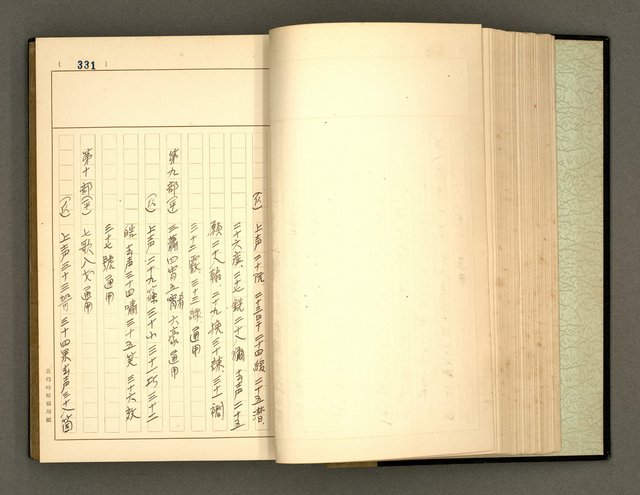 ( 331 )
(仄) 上声二十阮 二十三旱 二十四緩 二十五潸
二十六產 二十七銑 二十八獮 去声 二十五
願 二十八翰 二十九換 三十諫 三十一襇
三十二霰 三十三線 通用
第九部(平) 三蕭 四宵 五肴 六豪 通用
(仄) 上声 二十九篠 三十小 三十一巧 三十二
皓 去声三十四嘯 三十五笑 三十六效
三十七號 通用
第十部(平) 七歌 八戈 通用
(仄) 上声三十三哿 三十四果 去声三十八箇
黃得時原稿用紙